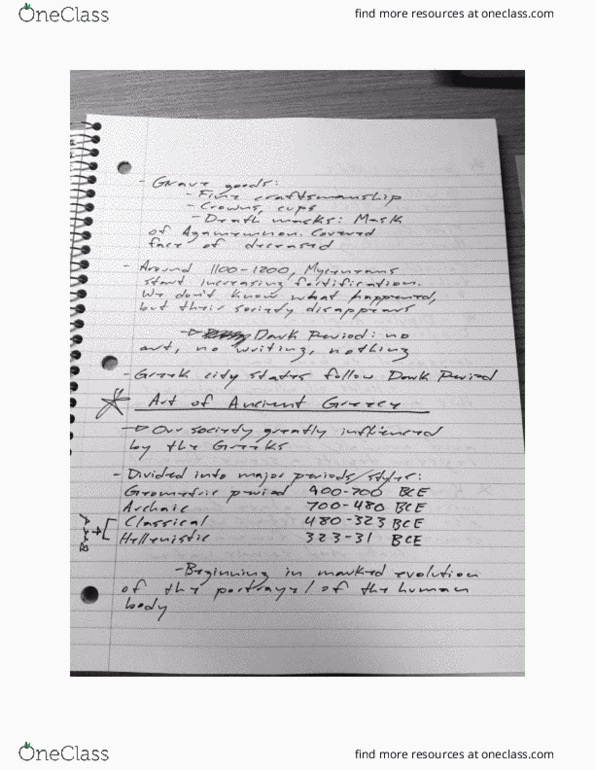 OneClass find more resources at oneclass.com
- Grave goods:
- Fine craftsmanship
- Crowns, cups
- Death masks: Mask
of Agamemnon. Covered
face of deceased
- Around 1100-1200, Mycenaeans
start increasing fortification.
We don't know what happened,
but their society disappears
Dark Period: no
art, no writing, nothing
- Greek city states follow Dark Period
Art of Ancient Greece
Our society greatly influenced
by the Greeks
- Divided into major periods/styles:
Geometric period 900-700 BCE
Archaic 700-480 BCE
Classical 480-323 BCE
Hellenistic 323-31 BCE
- Beginning in marked evolution
of the portrayal of the human
body
OneClass find more resources at oneclass.com